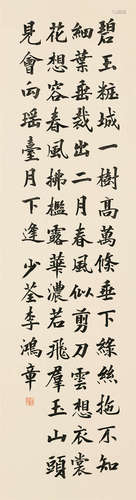 碧玉粧城一樹高萬條垂下綠絲拖不知
細葉垂裁出二月春風似剪刀雲想衣裳
花想容春風拂檻露華濃若飛羣玉山頭
見會向瑤臺月下逢少荃李鴻章